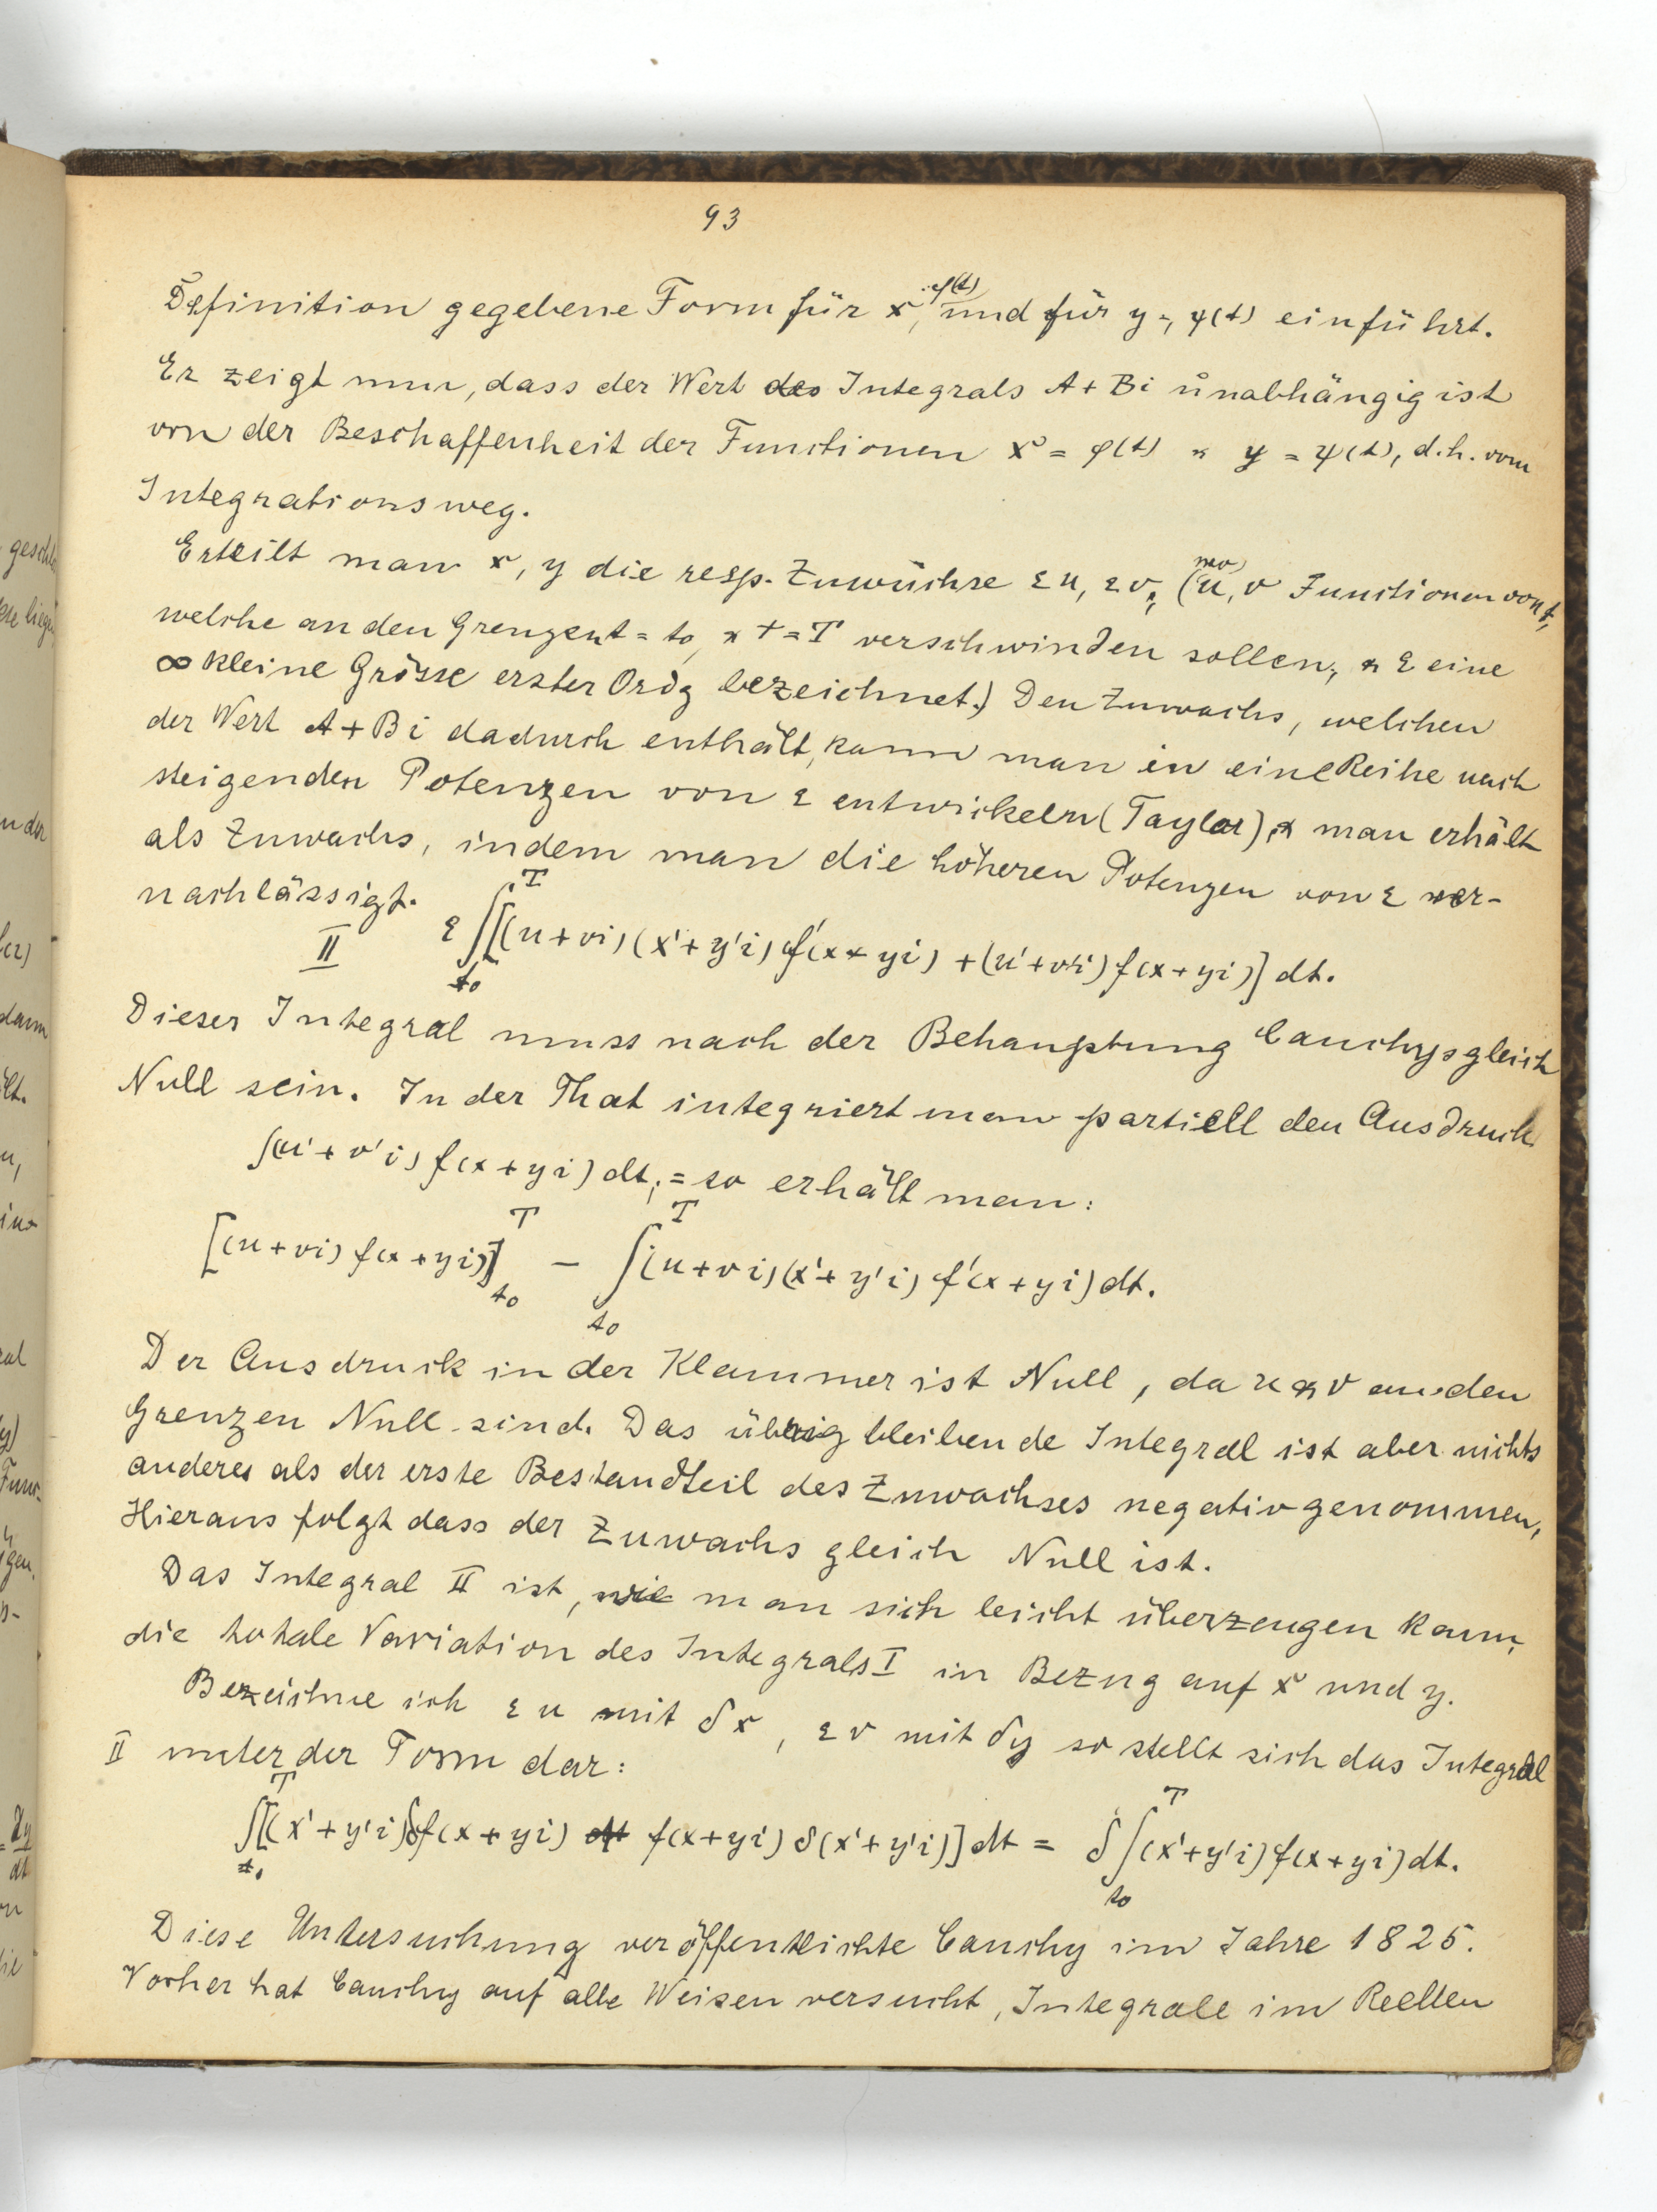 93
Definition gegebene Form für x = φ(t) und für y = ψ(t) einführt.
Er zeigt nun, dass der Wert des Integrals A + Bi unabhängig ist
von der Beschaffenheit der Functionen x = φ(t) & y = ψ(t), d.h. vom
Integrationsweg.
Erteilt man x, y die resp. Zuwüchse εu, εv, (wo u, v Functionen von t,
welche an den Grenzen t = t₀ & t = T verschwinden sollen, & ε eine
∞ kleine Grösse erster Ordg bezeichnet.) Den Zuwachs, welchen
der Wert A + Bi dadurch enthält, kann man in eine Reihe nach
steigenden Potenzen von ε entwickeln (Taylor), & man erhält
als Zuwachs, indem man die höheren Potenzen von ε ver-
nachlässigt.
II ε ∫_{t₀}^{T} [(u+vi)(x'+y'i) f'(x+yi) + (u'+v'i) f(x+yi)] dt.
Dieser Integral muss nach der Behauptung Cauchys gleich
Null sein. In der That integriert man partiell den Ausdruck
∫(u'+v'i) f(x+yi) dt, = so erhält man:
[(u+vi) f(x+yi)]_{t₀}^{T} − ∫_{t₀}^{T} (u+vi)(x'+y'i) f'(x+yi) dt.
Der Ausdruck in der Klammer ist Null, da u & v an den
Grenzen Null sind. Das übrig bleibende Integral ist aber nichts
anderes als der erste Bestandteil des Zuwachses negativ genommen,
Hieraus folgt dass der Zuwachs gleich Null ist.
Das Integral II ist, wie man sich leicht überzeugen kann,
die totale Variation des Integrals I in Bezug auf x und y.
Bezeichne ich εu mit δx, εv mit δy so stellt sich das Integral
II unter der Form dar:
∫_{t₀}^{T} [(x'+y'i) δf(x+yi) + f(x+yi) δ(x'+y'i)] dt = δ ∫_{t₀}^{T} (x'+y'i) f(x+yi) dt.
Diese Untersuchung veröffentlichte Cauchy im Jahre 1825.
Vorher hat Cauchy auf alle Weisen versucht, Integrale im Reellen